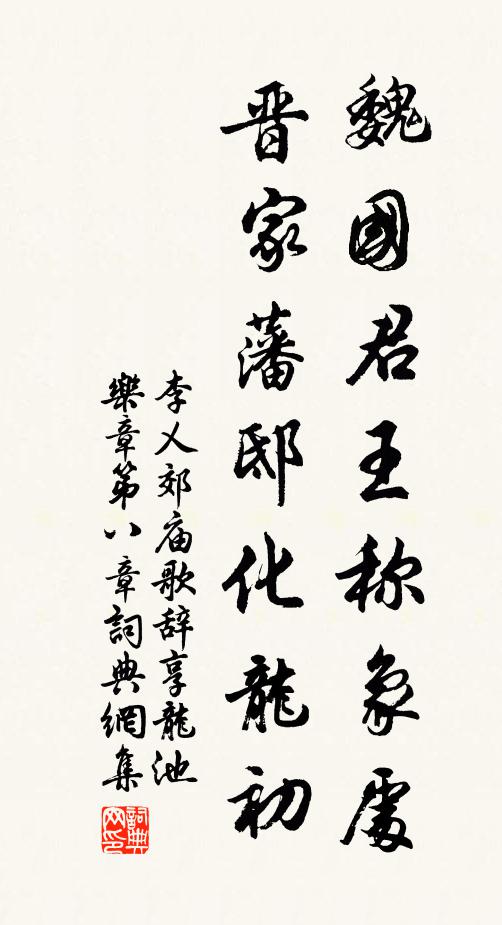 魏國君王称象處
晋家藩邸化龍初
李乂郊庙歌辞享龍池
樂章第八章詞典網集
詞典
网印